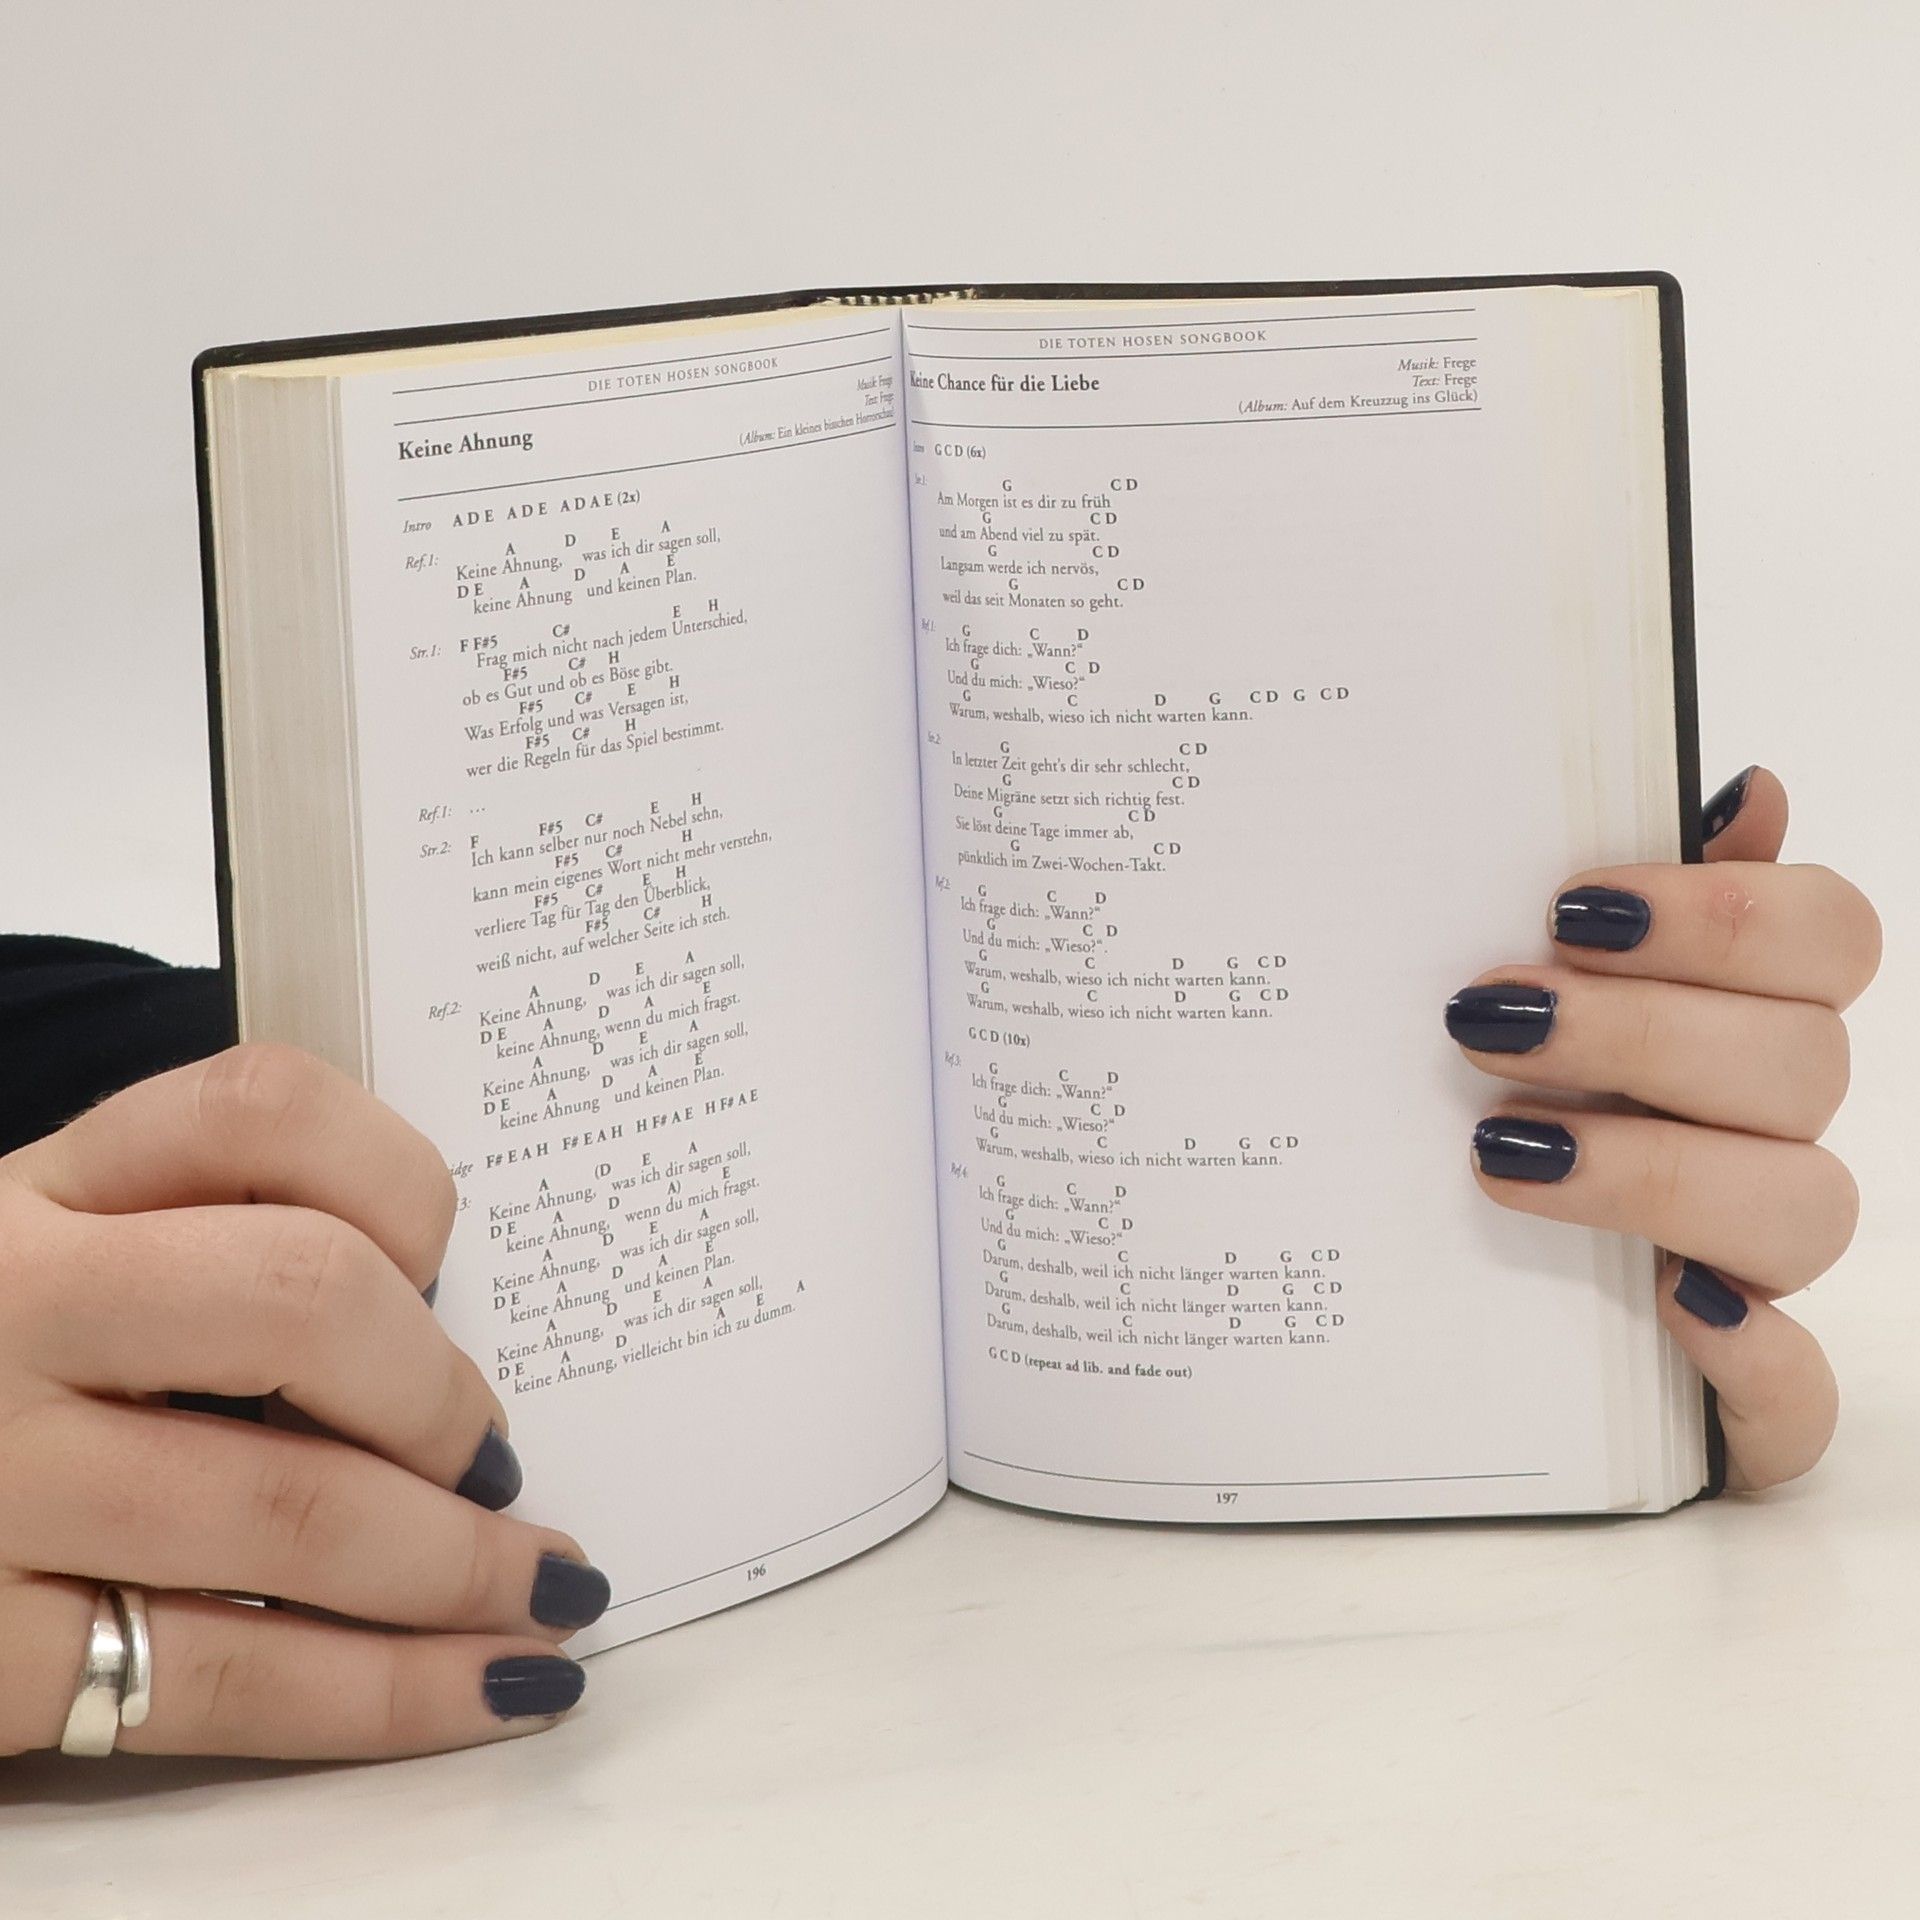 DIE TOTEN HOSEN SONGBOOK
Musik: Frege
Text: Frege
Keine Ahnung
(Album: Ein kleines bisschen Horrorschau)
Intro A D E A D E A D A E (2x)
A D E A
Ref.1: Keine Ahnung, was ich dir sagen soll,
D E A D A E
keine Ahnung und keinen Plan.
E H
Str.1: F F#5 C#
Frag mich nicht nach jedem Unterschied,
F#5 C# H
ob es Gut und ob es Böse gibt.
F#5 C# E H
Was Erfolg und was Versagen ist,
F#5 C# H
wer die Regeln für das Spiel bestimmt.
Ref.1: ...
Str.2: F F#5 C# E H
Ich kann selber nur noch Nebel sehn,
F#5 C# H
kann mein eigenes Wort nicht mehr verstehn,
F#5 C# E H
verliere Tag für Tag den Überblick,
F#5 C# H
weiß nicht, auf welcher Seite ich steh.
A D E A
Ref.2: Keine Ahnung, was ich dir sagen soll,
D E A D A E
keine Ahnung, wenn du mich fragst.
A D E A
Keine Ahnung, was ich dir sagen soll,
D E A D A E
keine Ahnung und keinen Plan.
idge F# E A H F# E A H H F# A E H F# A E
A (D E A
3: Keine Ahnung, was ich dir sagen soll,
D E A D A) E
keine Ahnung, wenn du mich fragst.
A D E A
Keine Ahnung, was ich dir sagen soll,
D E A D A E
keine Ahnung und keinen Plan.
A D E A
Keine Ahnung, was ich dir sagen soll,
D E A D A E A
keine Ahnung, vielleicht bin ich zu dumm.
196
DIE TOTEN HOSEN SONGBOOK
Musik: Frege
Keine Chance für die Liebe
Text: Frege
(Album: Auf dem Kreuzzug ins Glück)
Intro G C D (6x)
Str.1: G C D
Am Morgen ist es dir zu früh
G C D
und am Abend viel zu spät.
G C D
Langsam werde ich nervös,
G C D
weil das seit Monaten so geht.
Ref.1: G C D
Ich frage dich: „Wann?“
G C D
Und du mich: „Wieso?“
G C D G C D G C D
Warum, weshalb, wieso ich nicht warten kann.
Str.2: G C D
In letzter Zeit geht's dir sehr schlecht,
G C D
Deine Migräne setzt sich richtig fest.
G C D
Sie löst deine Tage immer ab,
G C D
pünktlich im Zwei-Wochen-Takt.
Ref.2: G C D
Ich frage dich: „Wann?“
G C D
Und du mich: „Wieso?“.
G C D G C D
Warum, weshalb, wieso ich nicht warten kann.
G C D G C D
Warum, weshalb, wieso ich nicht warten kann.
G C D (10x)
Ref.3: G C D
Ich frage dich: „Wann?“
G C D
Und du mich: „Wieso?“
G C D G C D
Warum, weshalb, wieso ich nicht warten kann.
Ref.4: G C D
Ich frage dich: „Wann?“
G C D
Und du mich: „Wieso?“
G C D G C D
Darum, deshalb, weil ich nicht länger warten kann.
G C D G C D
Darum, deshalb, weil ich nicht länger warten kann.
G C D G C D
Darum, deshalb, weil ich nicht länger warten kann.
G C D (repeat ad lib. and fade out)
197